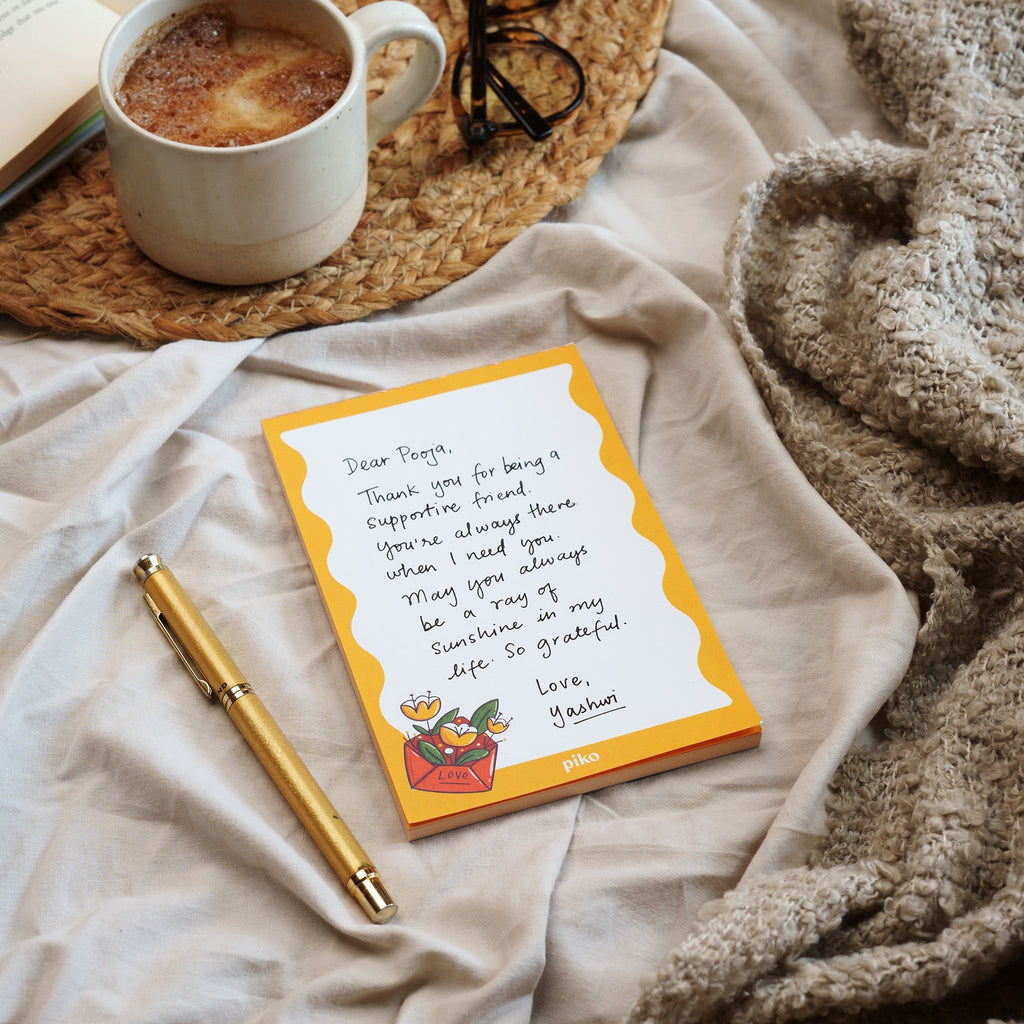 Dear Pooja,
Thank you for being a
supportive friend.
You're always there
when I need you.
May you always
be a ray of
sunshine in my
life. So grateful.
Love,
Yashwi
LOVE
piko